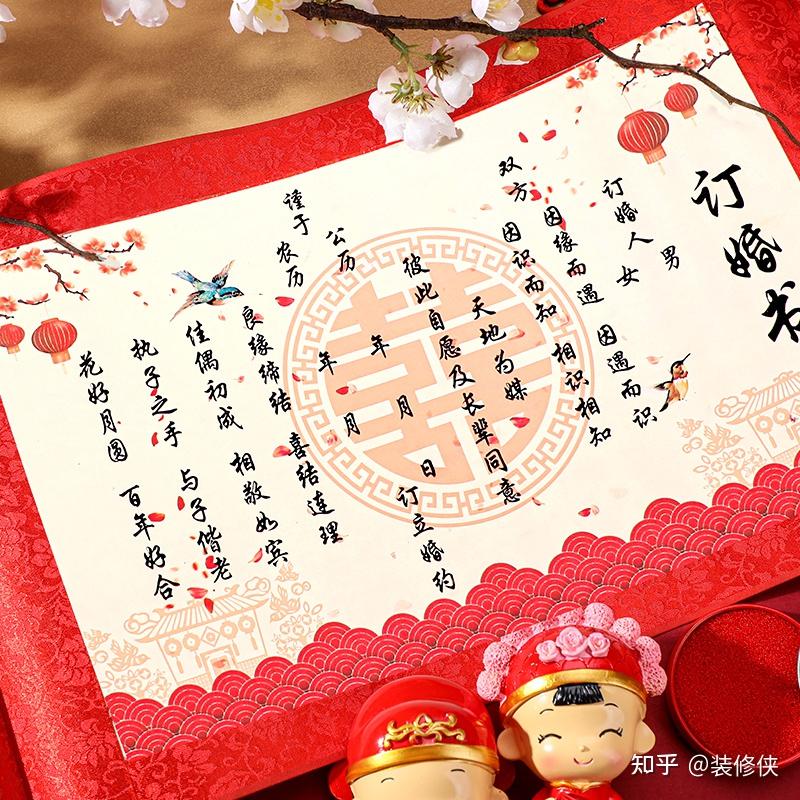 订婚书
男
订婚人 女
因缘而遇 因遇而识
双方 因识而知 相识相知
天地为媒
彼此自愿及长辈同意
公历 年 月 日 订立婚约
谨于 农历 年 月
良缘缔结 喜结连理
佳偶初成 相敬如宾
执子之手 与子偕老
花好月圆 百年好合
囍
知乎 @装修侠